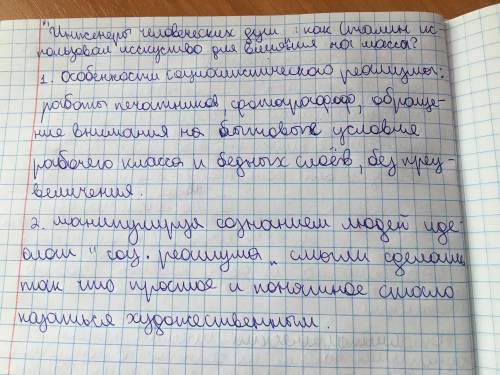 "Инженеры человеческих душ": как Сталин ис-
пользовал исскуство для влияния на массы?
1. Особенности социалистического реализма:
работы печатников, фотографов, обраще-
ние внимания на бытовые условия
рабочего класса и бедных слоёв, без преу-
величения.
2. манипулируя сознанием людей иде-
алом "соц. реализма" смогли сделать
так что простое и понятное стало
казаться художественным.